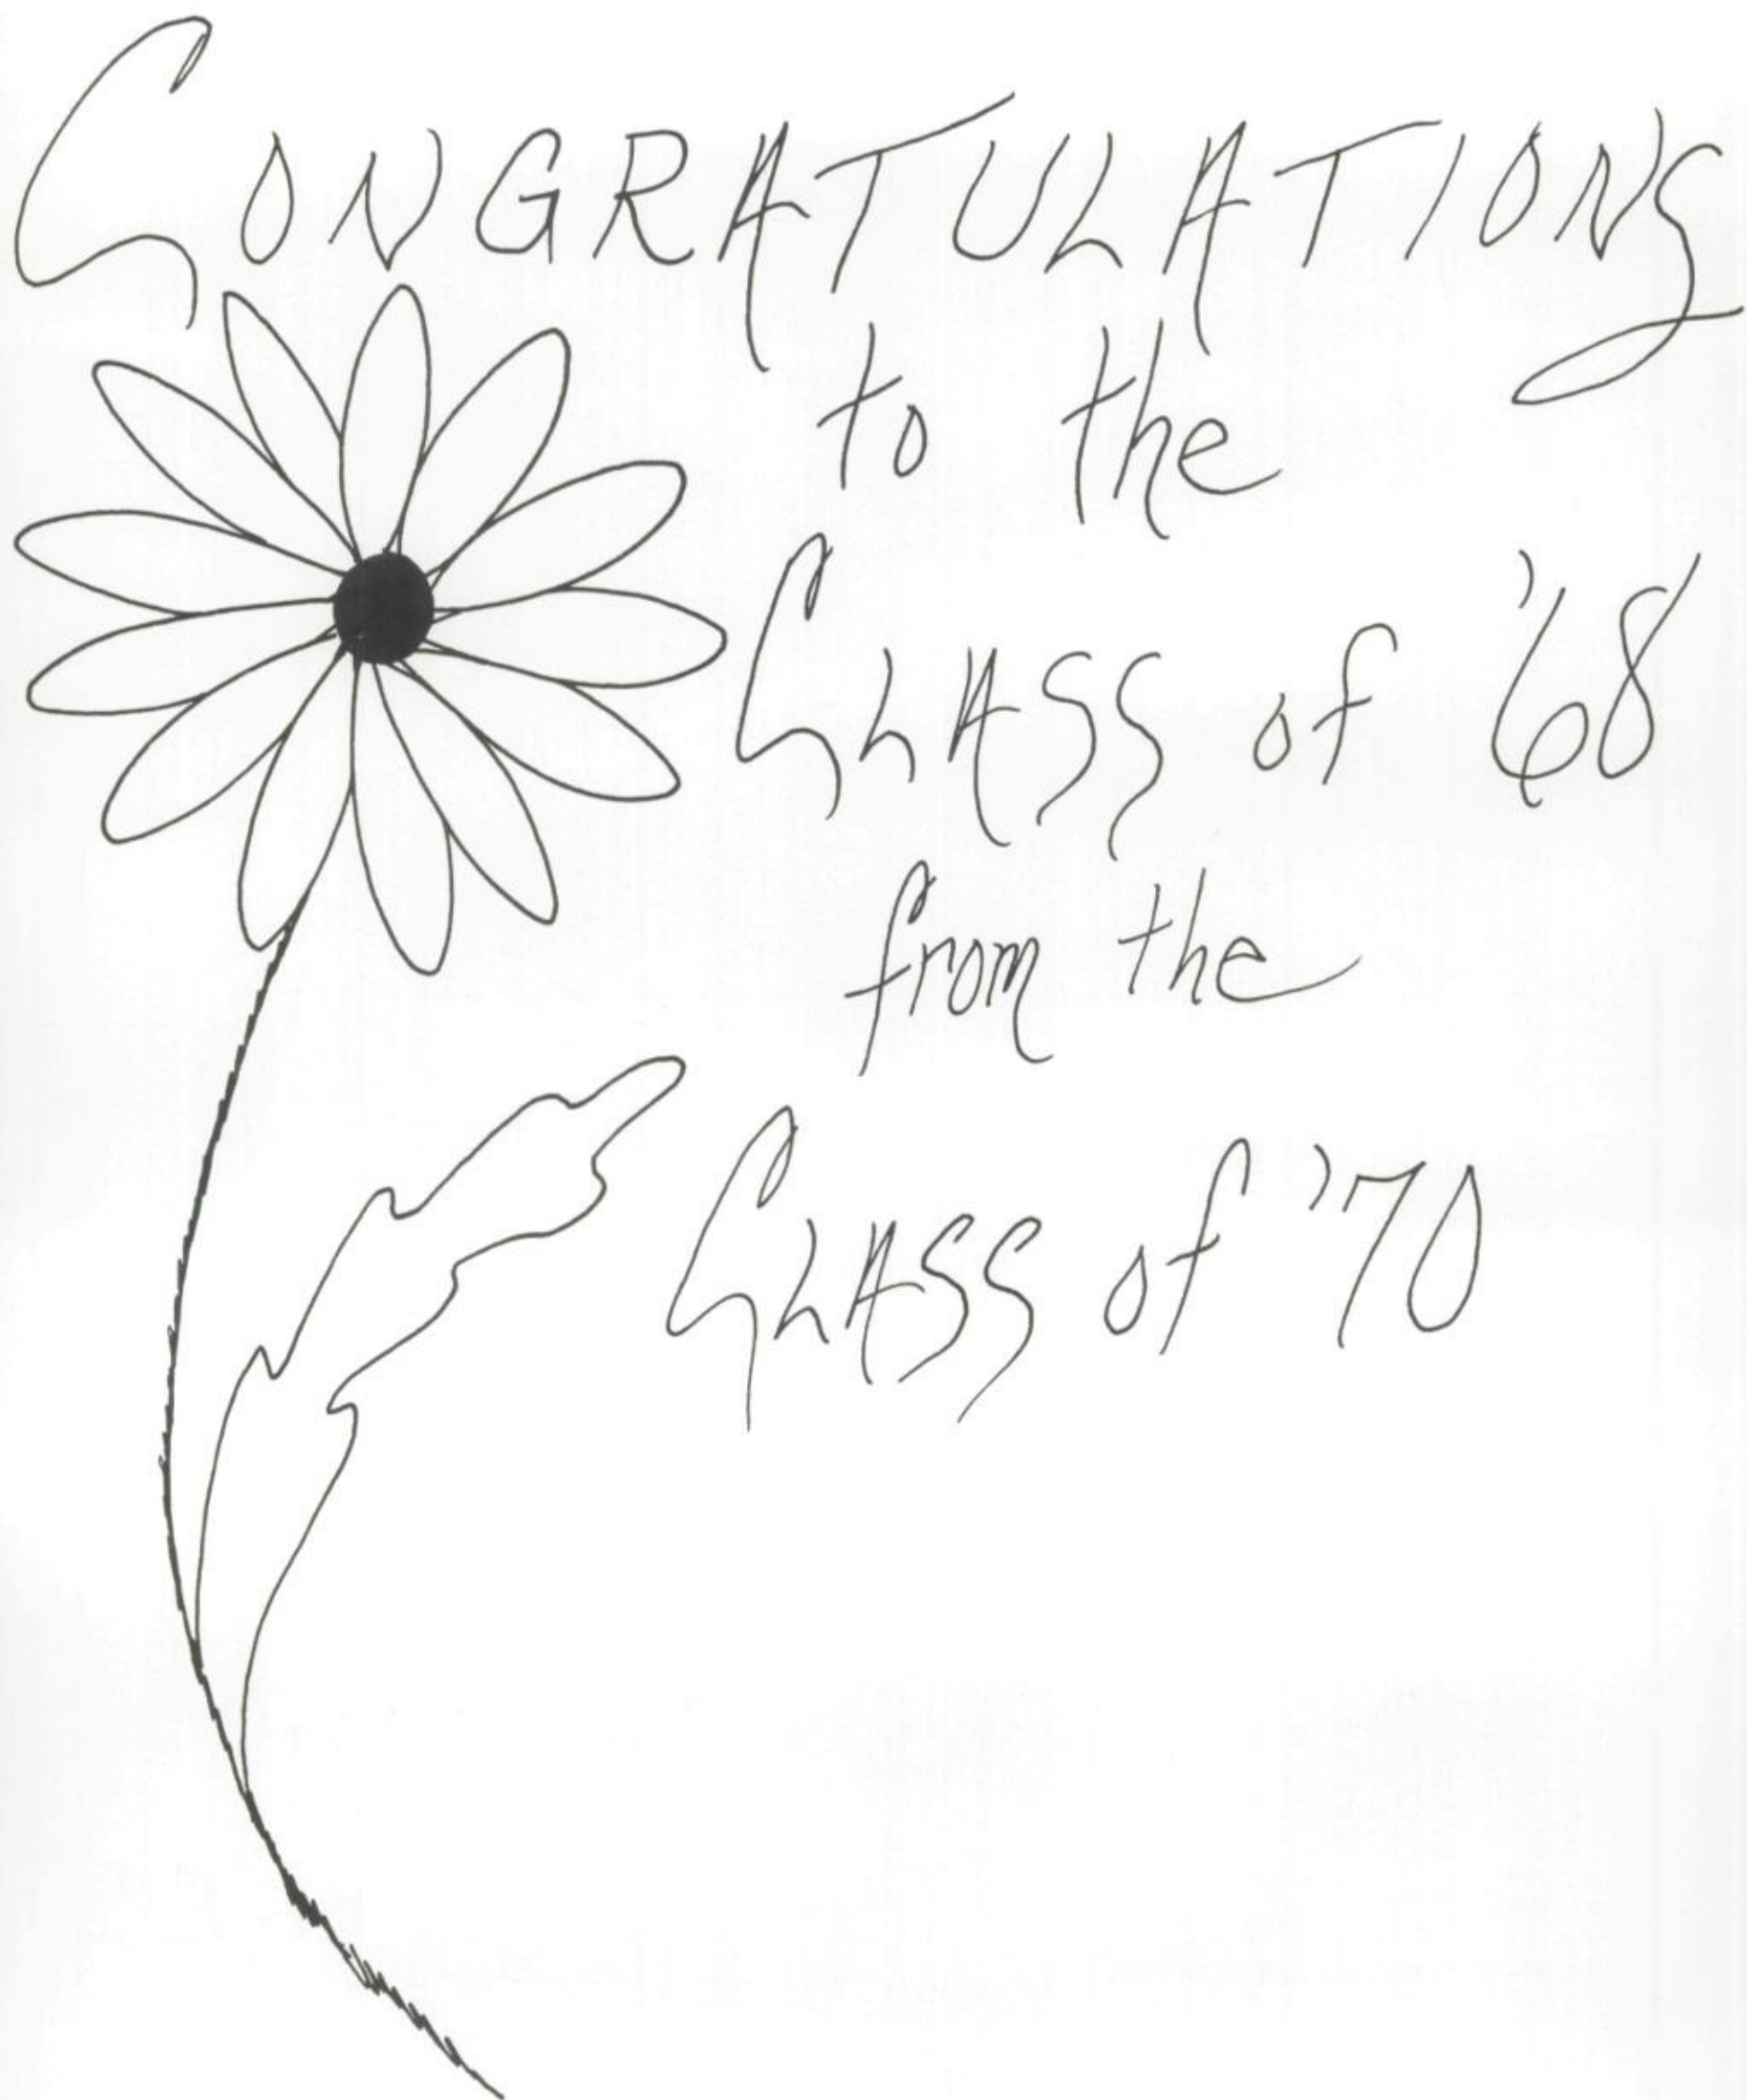 CONGRATULATIONS
to the
CLASS of '68
from the
CLASS of '70